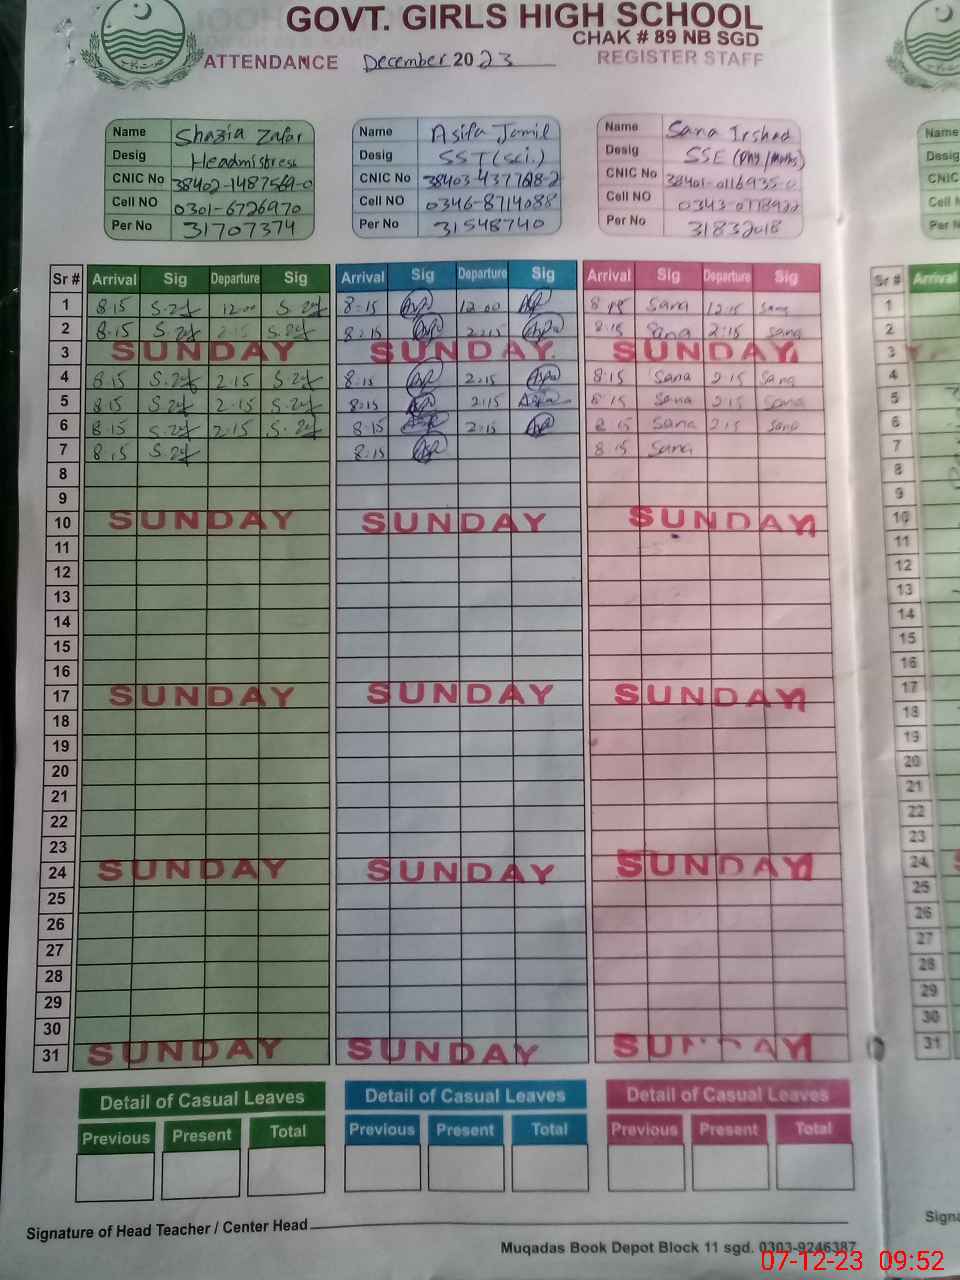 GOVT. GIRLS HIGH SCHOOL
CHAK # 89 NB SGD
ATTENDANCE December 2023 REGISTER STAFF
Name Shazia Zafar
Desig Headmistress
CNIC No 38402-1487569-0
Cell NO 0301-6726970
Per No 31707374
Name Asifa Jamil
Desig SST (Sci.)
CNIC No
Cell NO 0346-8714088
Per No 31548740
Name Sana Irshad
Desig SSE (Phy/Maths)
CNIC No 38401-0116935-0
Cell NO
Per No 31832018
Sr # Arrival Sig Departure Sig Arrival Sig Departure Sig Arrival Sig Departure Sig
1 8.15 12.00 8:15 12:00 8:15 Sana 12:15 Sana
2 8:15 2:15 8:15 2:15 8:15 Sana 2:15 Sana
3 SUNDAY SUNDAY SUNDAY
4 8:15 2.15 8:15 2:15 8:15 Sana 2:15 Sana
5 8:15 2:15 8:15 2:15 8:15 Sana 2:15 Sana
6 8:15 2:15 8:15 2:15 8:15 Sana 2:15 Sana
7 8:15 8:15 8:15 Sana
8
9
10 SUNDAY SUNDAY SUNDAY
11
12
13
14
15
16
17 SUNDAY SUNDAY SUNDAY
18
19
20
21
22
23
24 SUNDAY SUNDAY SUNDAY
25
26
27
28
29
30
31 SUNDAY SUNDAY SUNDAY
Detail of Casual Leaves Detail of Casual Leaves Detail of Casual Leaves
Previous Present Total Previous Present Total Previous Present Total
Signature of Head Teacher / Center Head
Muqadas Book Depot Block 11 sgd. 0303-9246387
07-12-23 09:52
Name
Desig
CNIC
Cell N
Per N
Sr # Arrival
1
2
3
4
5
6
7
8
9
10
11
12
13
14
15
16
17
18
19
20
21
22
23
24
25
26
27
28
29
30
31
Signa